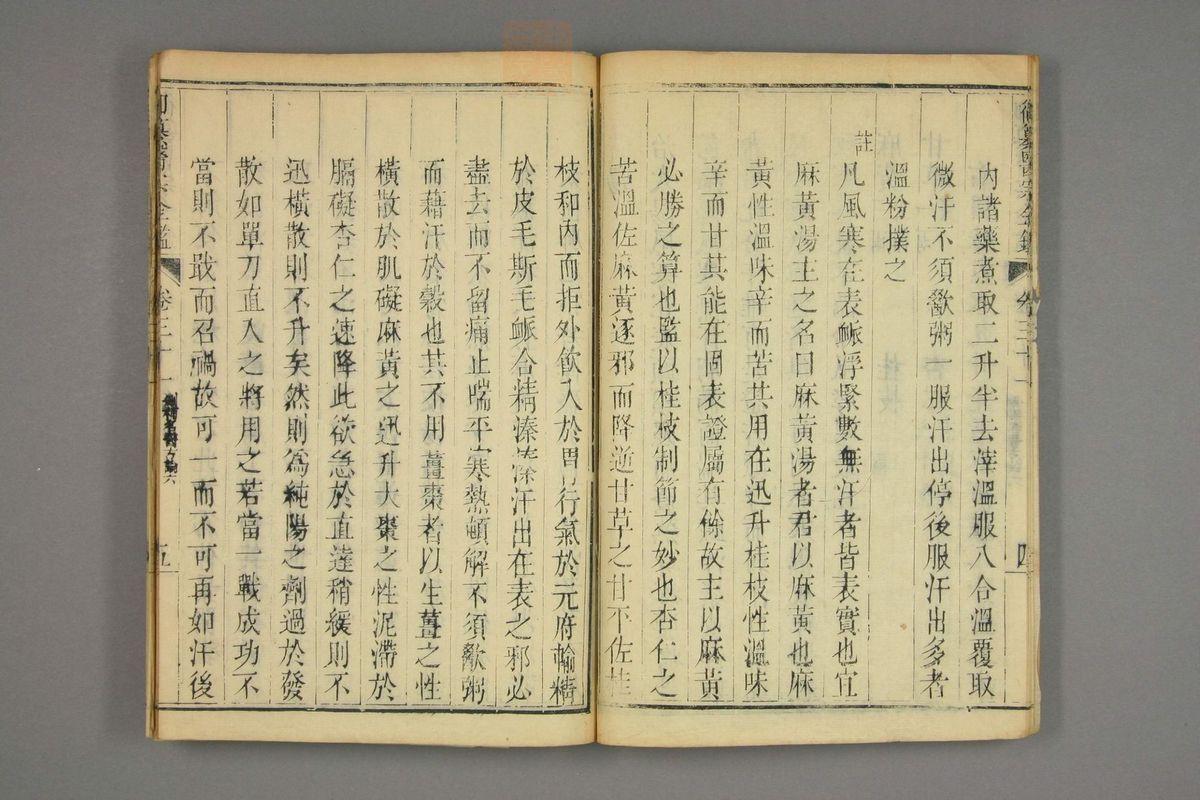 御纂醫宗金鑑 卷三十一 四
內諸藥煮取二升半去滓溫服八合溫覆取
微汗不須歠粥一服汗出停後服汗出多者
溫粉撲之
註
凡風寒在表脈浮緊數無汗者皆表實也宜
麻黃湯主之名曰麻黃湯者君以麻黃也麻
黃性溫味辛而苦其用在迅升桂枝性溫味
辛而甘其能在固表證屬有餘故主以麻黃
必勝之算也監以桂枝制節之妙也杏仁之
苦溫佐麻黃逐邪而降逆甘草之甘平佐桂
枝和內而拒外飲入於胃行氣於元府輸精
於皮毛斯毛脈合精溱溱汗出在表之邪必
盡去而不留痛止喘平寒熱頓解不須歠粥
而藉汗於穀也其不用薑棗者以生薑之性
橫散於肌礙麻黃之迅升大棗之性泥滯於
膈礙杏仁之速降此欲急於直達稍緩則不
迅橫散則不升矣然則為純陽之劑過於發
散如單刀直入之將用之若當一戰成功不
當則不戢而召禍故可一而不可再如汗後
卷三十一 五